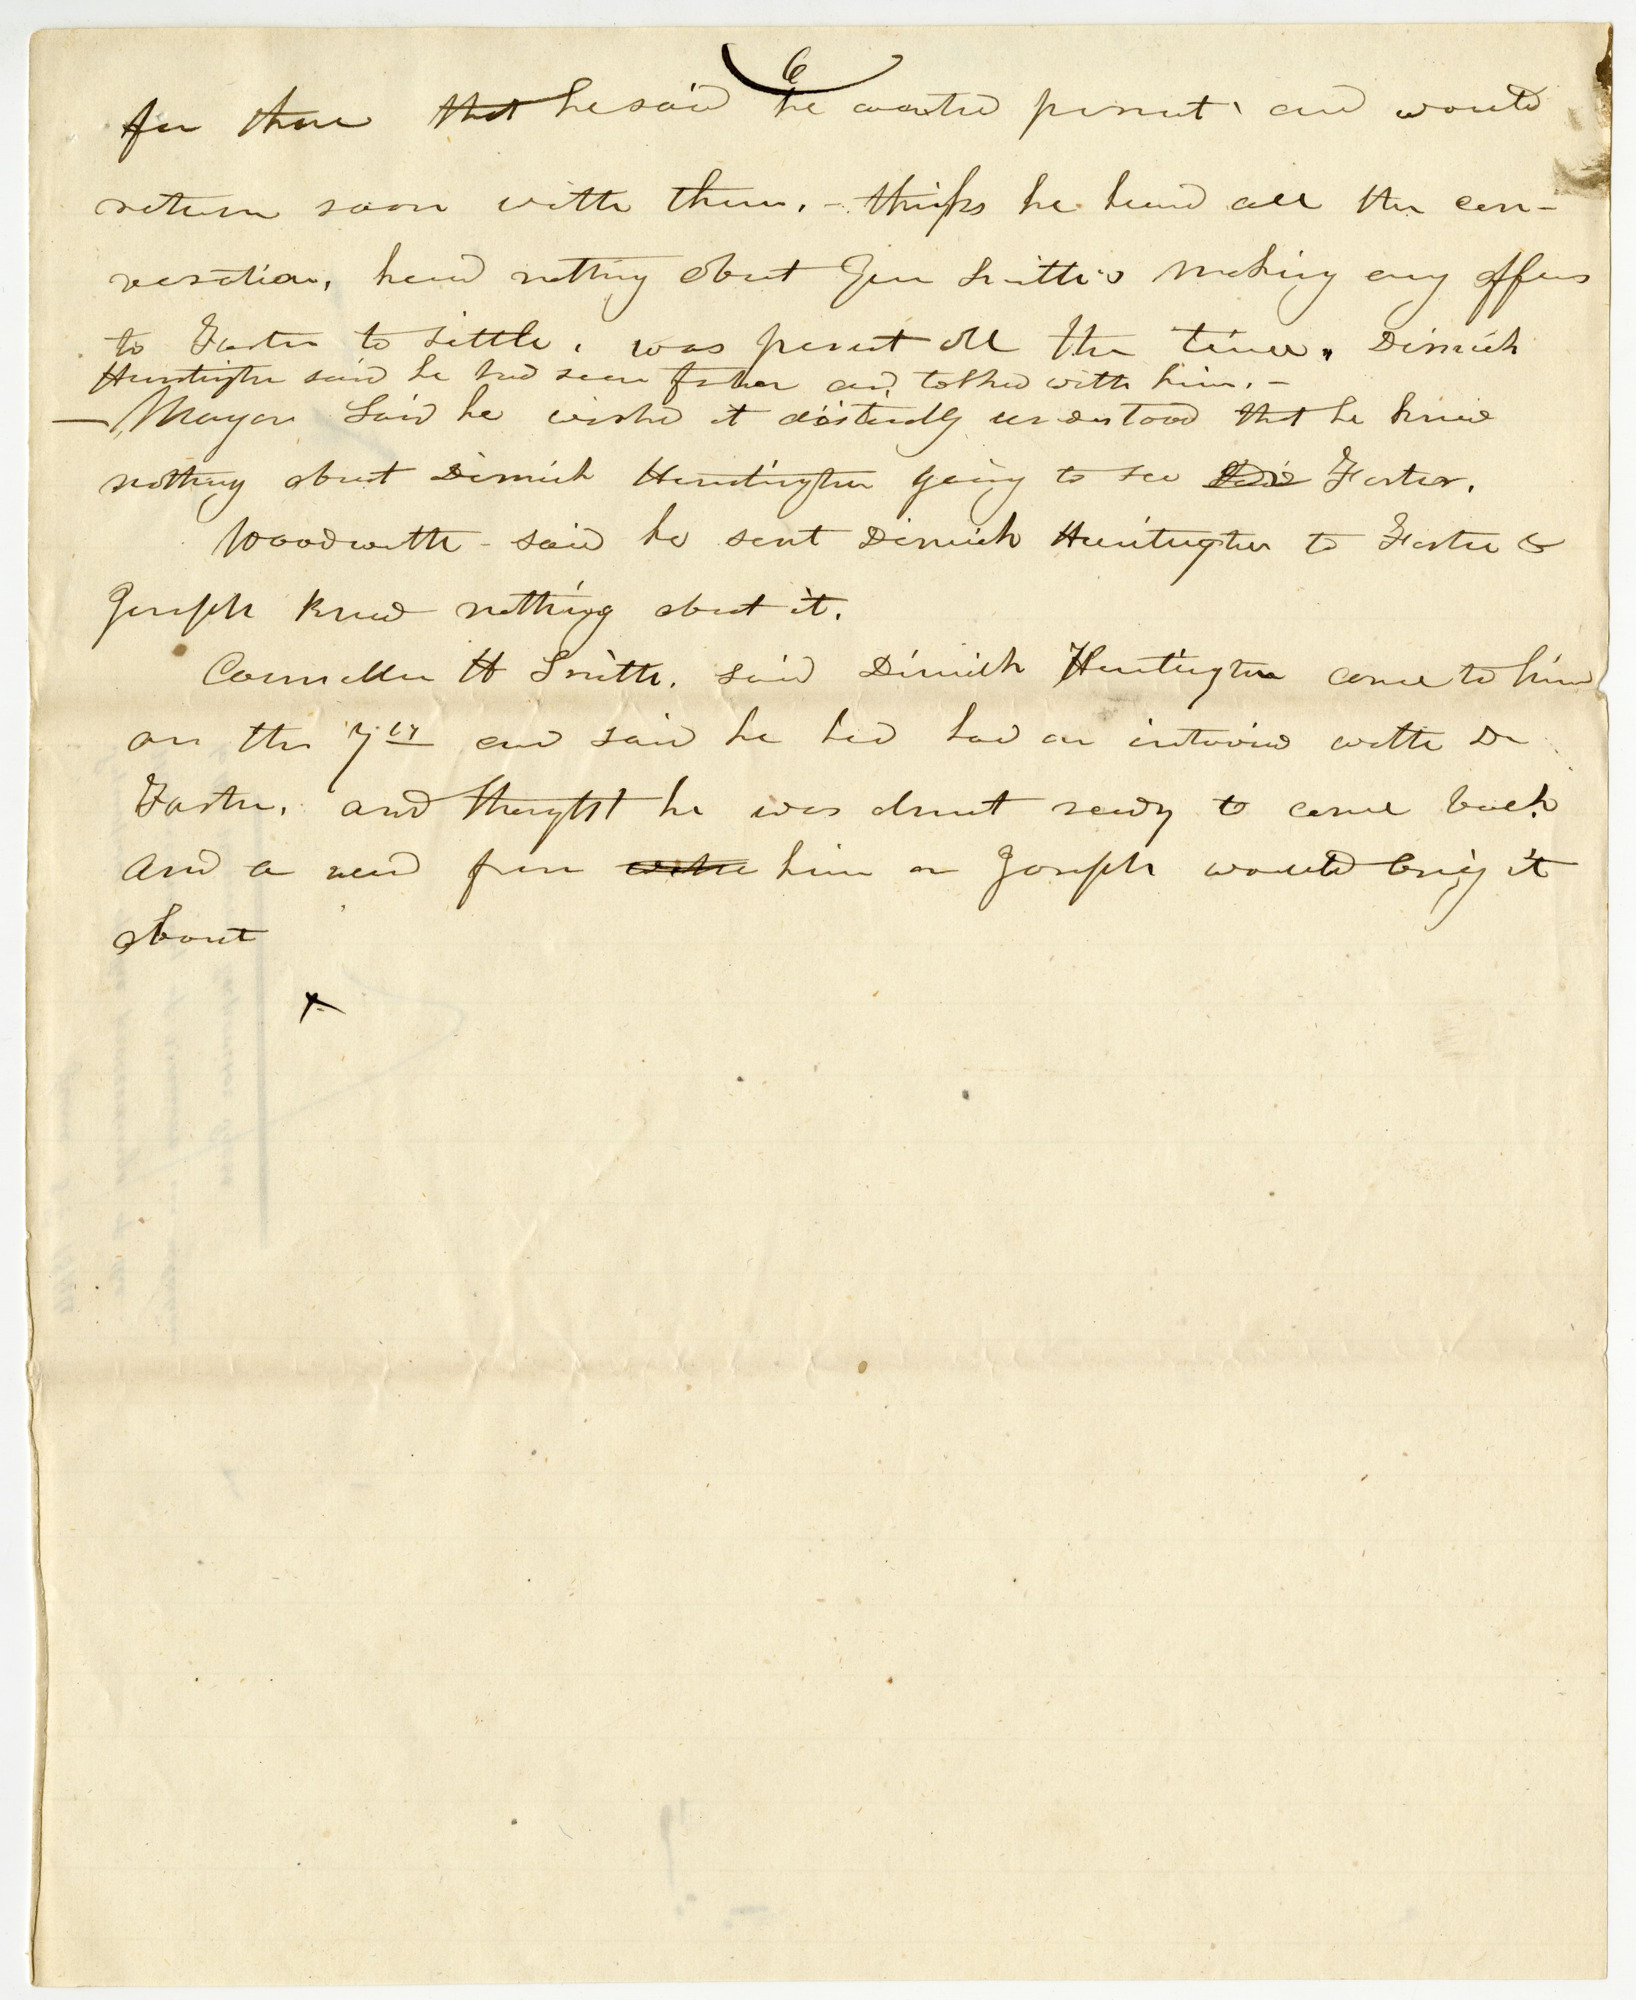 6
for those that he said he wanted present and would
return soon with them. - thinks he heard all the con-
versation, heard nothing about Gen Smith's making any offers
to Foster to settle, was present all the time. Dimick
Huntington said he had seen Foster and talked with him. -
- Mayor Said he wished it distinctly understood that he knew
nothing about Dimick Huntington going to see Foster.
Woodworth - said he sent Dimick Huntington to Foster &
Joseph knew nothing about it.
Councillor H Smith. said Dimick Huntington come to him
on the 7th and said he had had an interview with Dr
Foster. and thought he was about ready to come back
and a word from him or Joseph would bring it
about